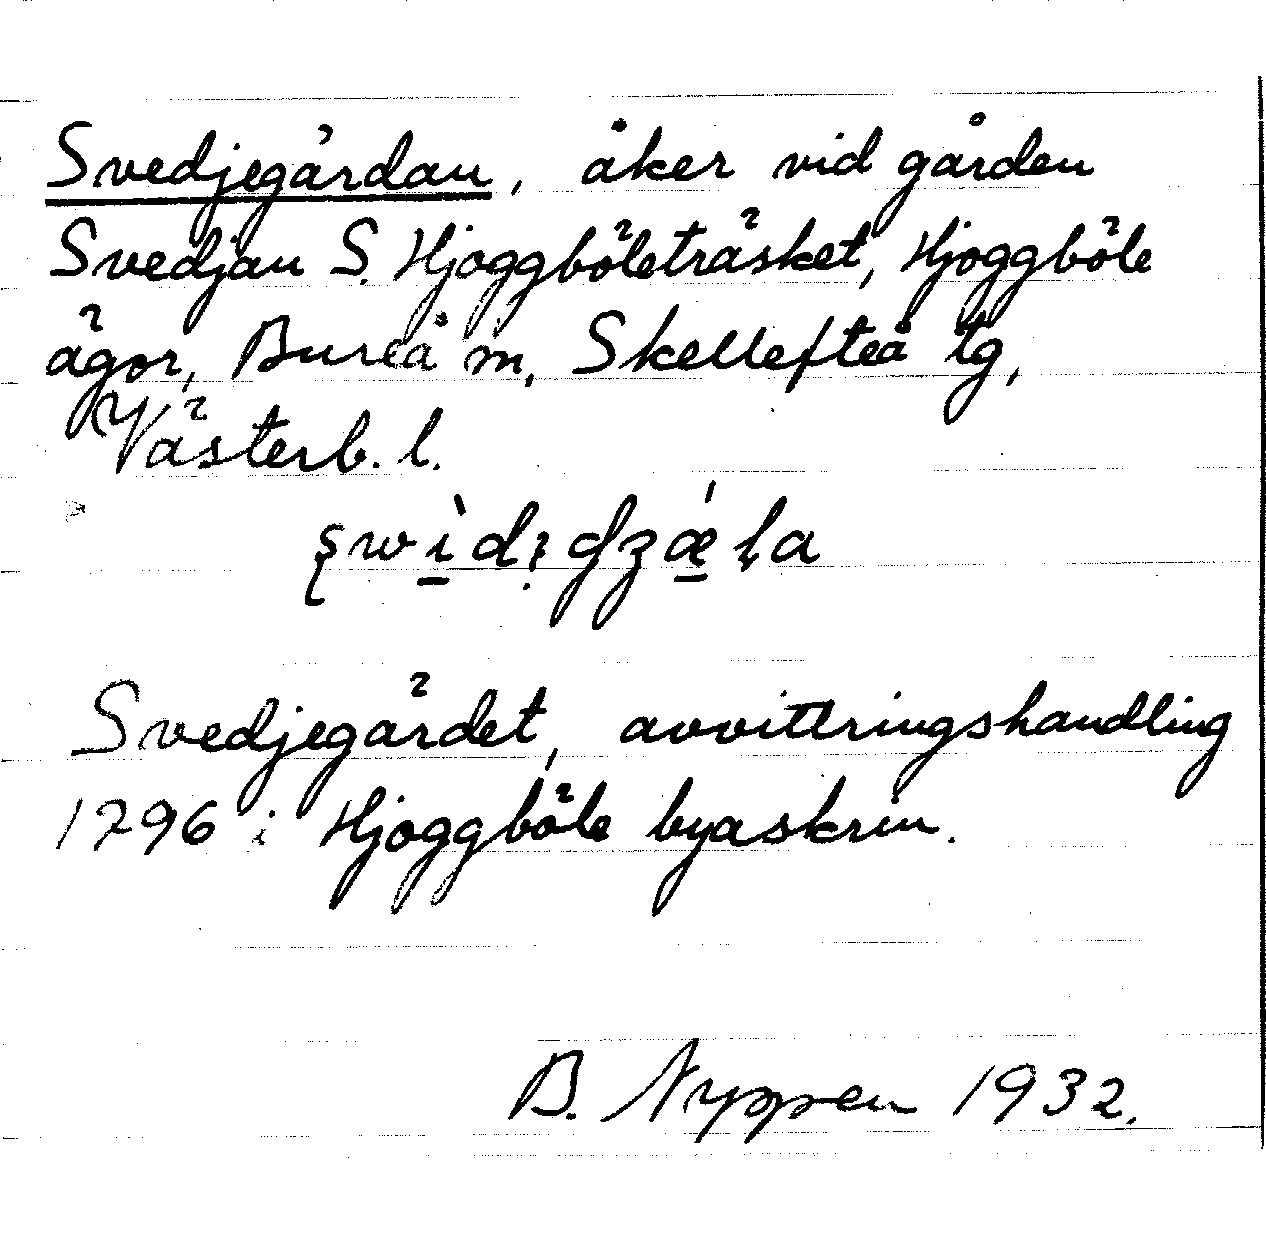 Svedjegärdan, åker vid gården
Svedjan S. Hjoggböleträsket, Hjoggböle
ägor, Bureå m, Skellefteå tg,
Västerb. l.
Svedjegärdet, avvittringshandling
1796 i Hjoggböle byaskrin.
B. Nyppen 1932.